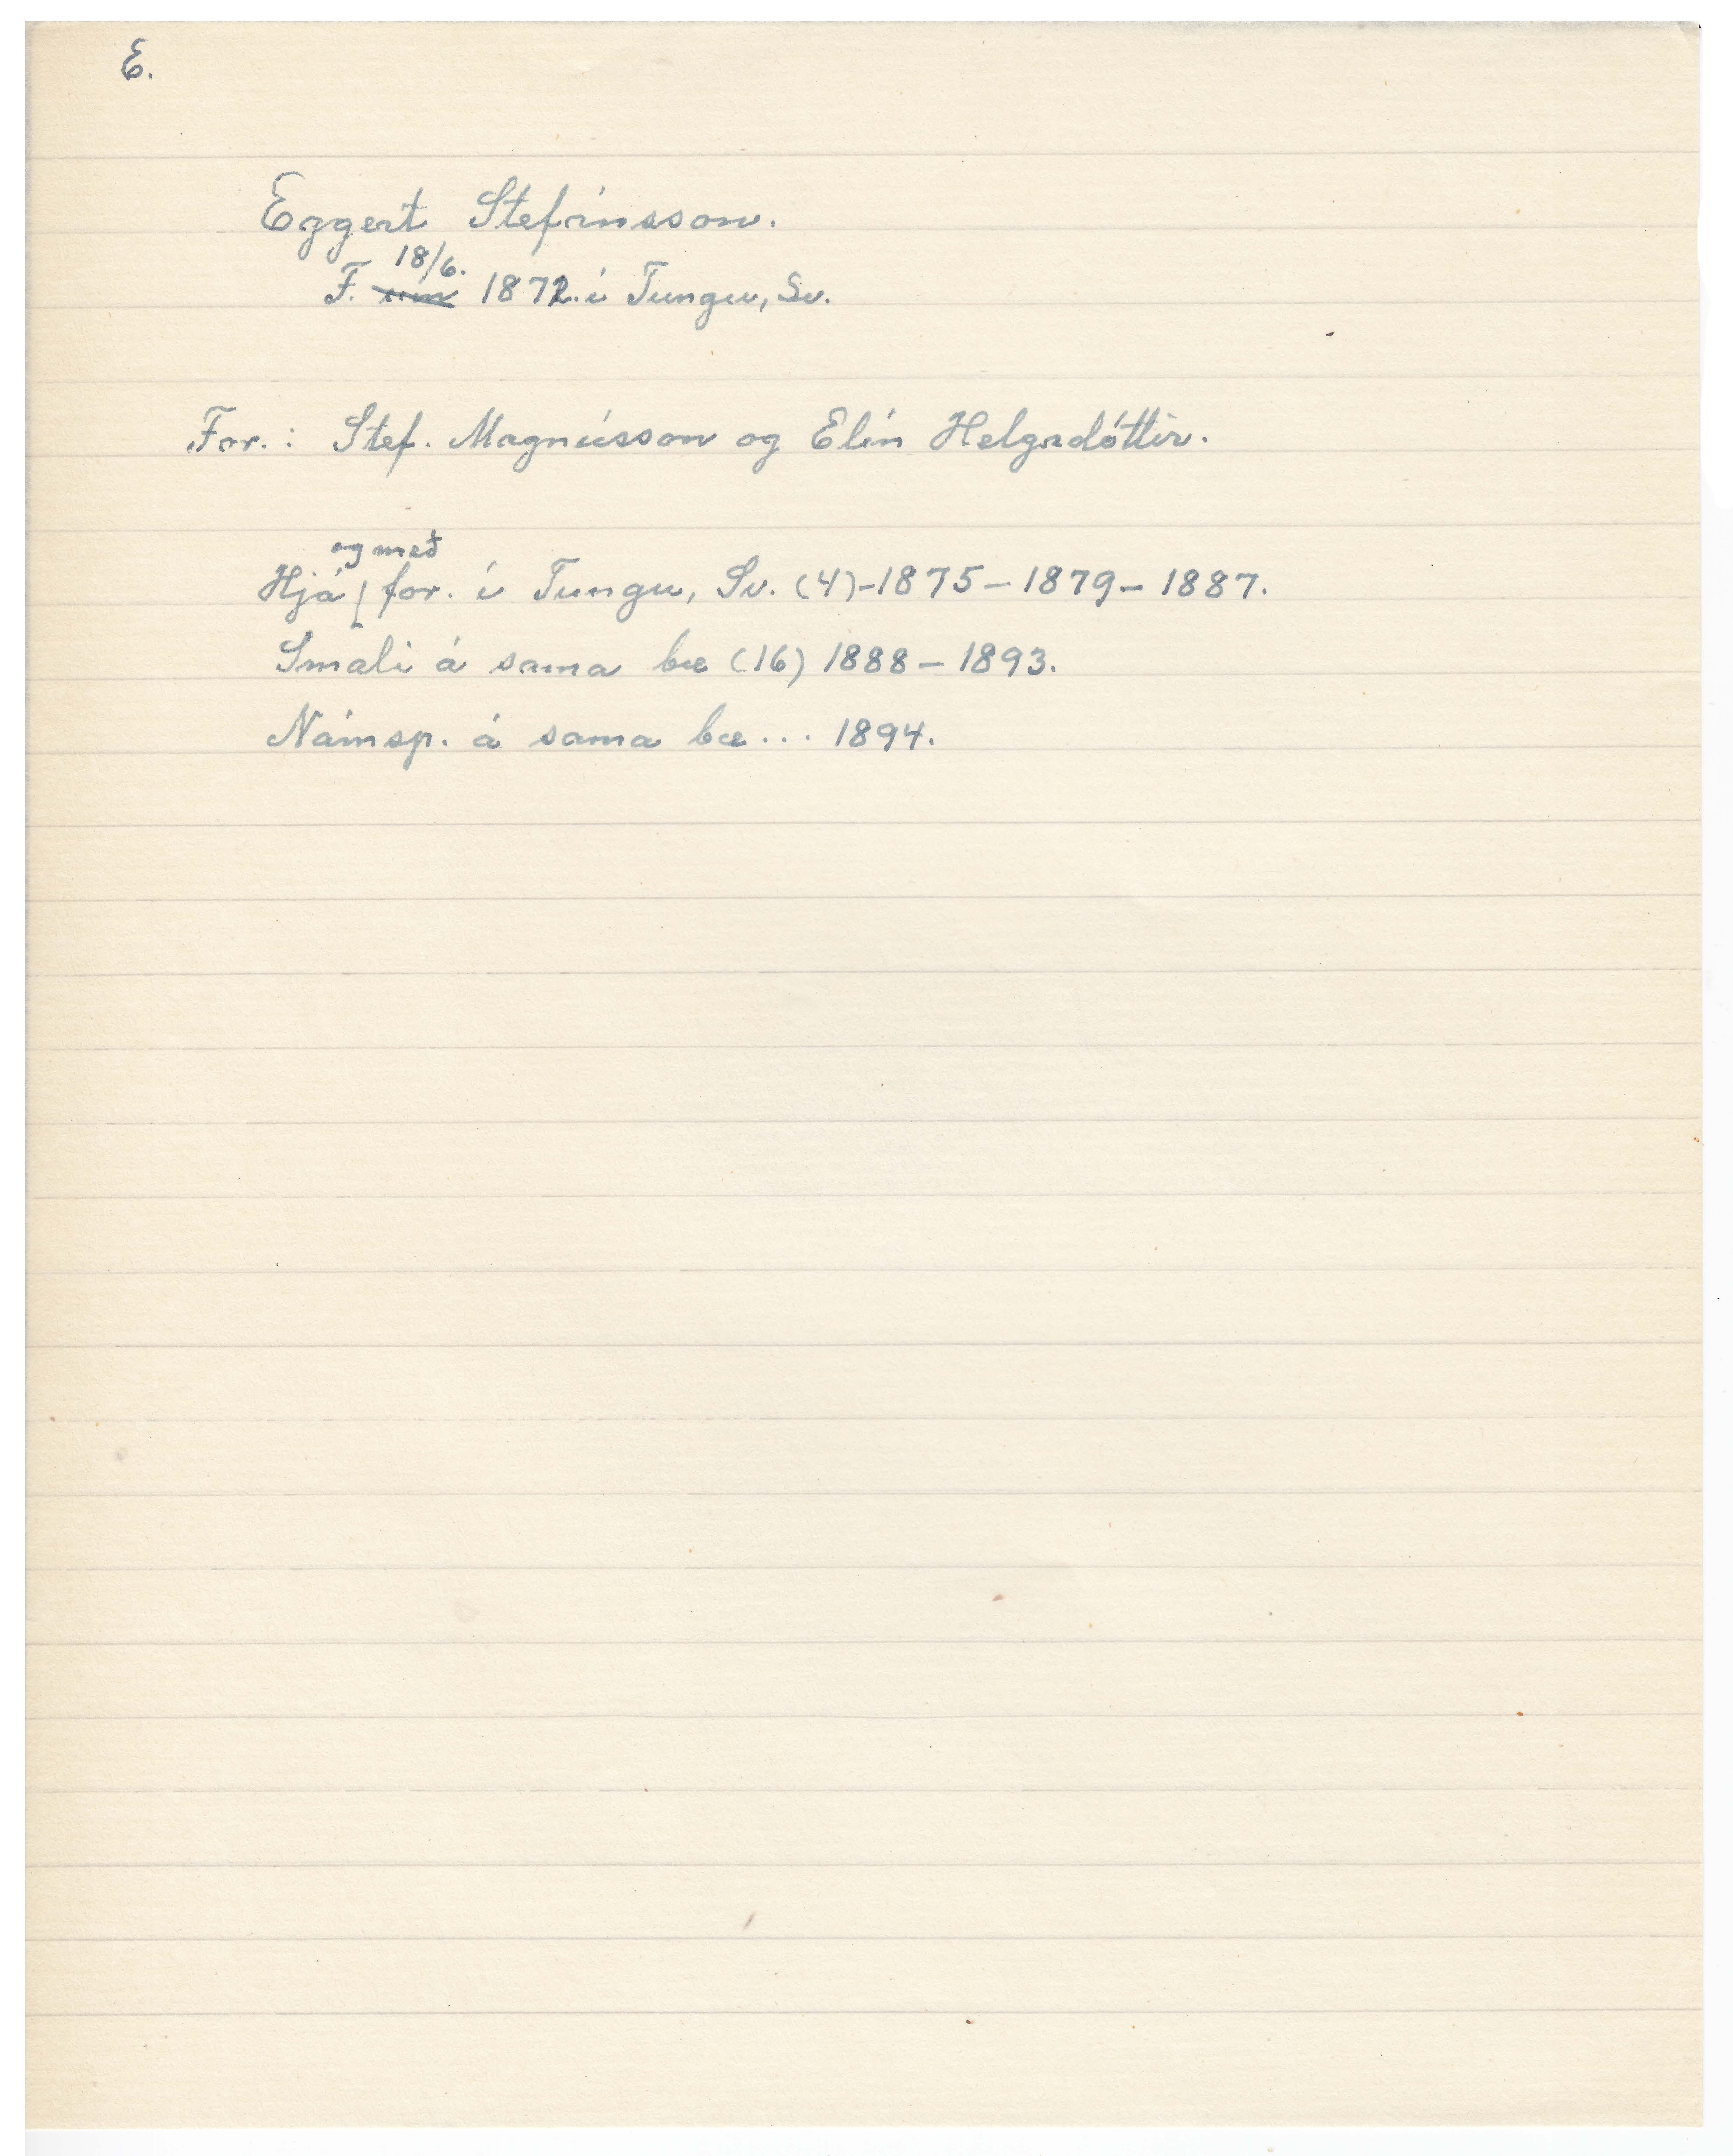 E.
Eggert Stefánsson.
F. 18/6. 1872. í Tungu, Sv.
For.: Stef. Magnússon og Elín Helgadóttir.
Hjá og með for. í Tungu, Sv. (4)-1875-1879-1887.
Smali á sama bæ (16) 1888-1893.
Námsp. á sama bæ... 1894.